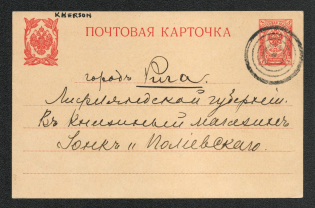 KHERSON
ПОЧТОВАЯ КАРТОЧКА
городъ Рига.
Лифляндской губернiи.
Въ книжный магазинъ
Іонкъ и Полiевскаго.